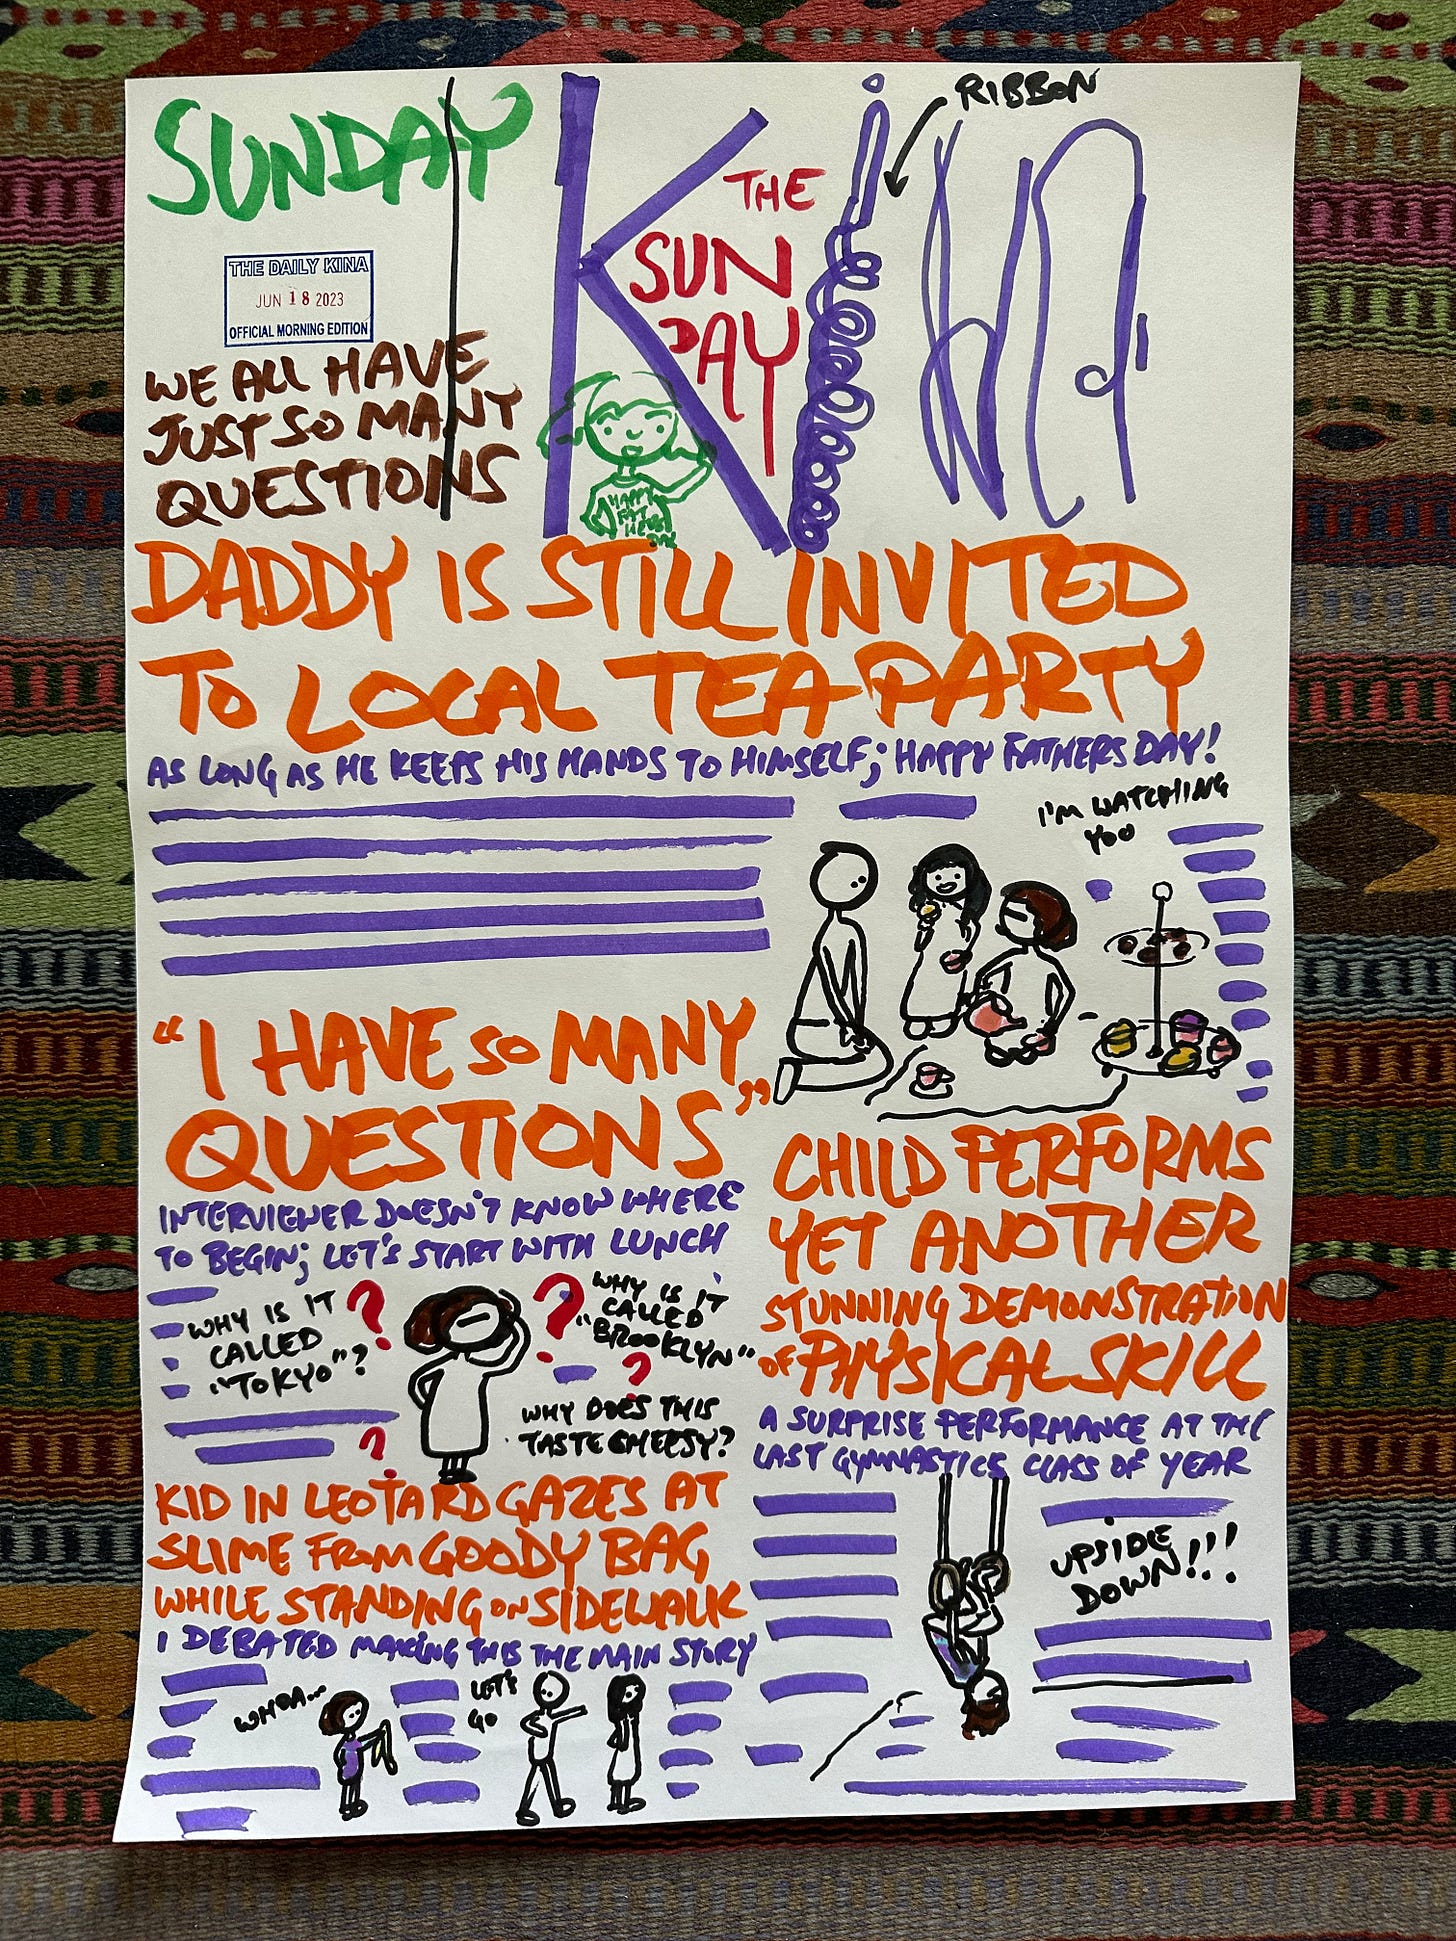 SUNDAY
THE DAILY KINA
JUN 18 2023
OFFICIAL MORNING EDITION
WE ALL HAVE
JUST SO MANY
QUESTIONS
Kina
THE
SUN
DAY
RIBBON
HAPPY
DADDY IS STILL INVITED
TO LOCAL TEA PARTY
AS LONG AS HE KEEPS HIS HANDS TO HIMSELF; HAPPY FATHERS DAY!
I'M WATCHING
YOU
"I HAVE SO MANY
QUESTIONS"
INTERVIEWER DOESN'T KNOW WHERE
TO BEGIN; LET'S START WITH LUNCH
WHY IS IT
CALLED
"TOKYO"?
?
?
WHY IS IT
CALLED
"BROOKLYN"
?
WHY DOES THIS
TASTE CHEESY?
?
CHILD PERFORMS
YET ANOTHER
STUNNING DEMONSTRATION
OF PHYSICAL SKILL
A SURPRISE PERFORMANCE AT THE
LAST GYMNASTICS CLASS OF YEAR
UPSIDE
DOWN!!!
KID IN LEOTARD GAZES AT
SLIME FROM GOODY BAG
WHILE STANDING ON SIDEWALK
I DEBATED MAKING THIS THE MAIN STORY
WHOA...
LET'S
GO